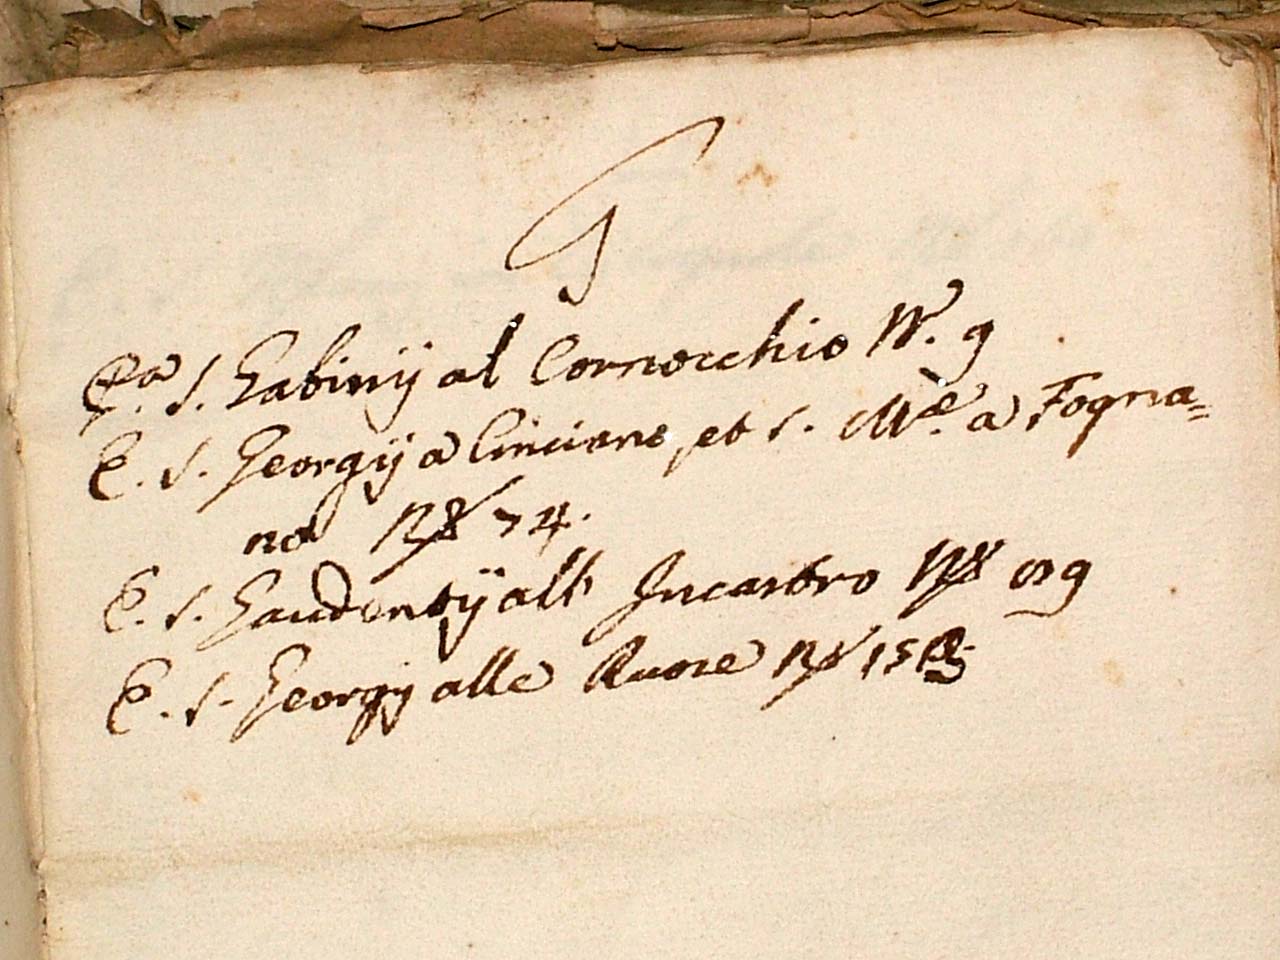 G
E.a S. Gabinij al Cornocchio Nr. 9
E. S. Georgij a Cinciano, et S. Mæ. a Fogna=
no Nr 74.
E. S. Gaudentij all' Incastro Nr
E. S. Georgij alle Ruote Nr